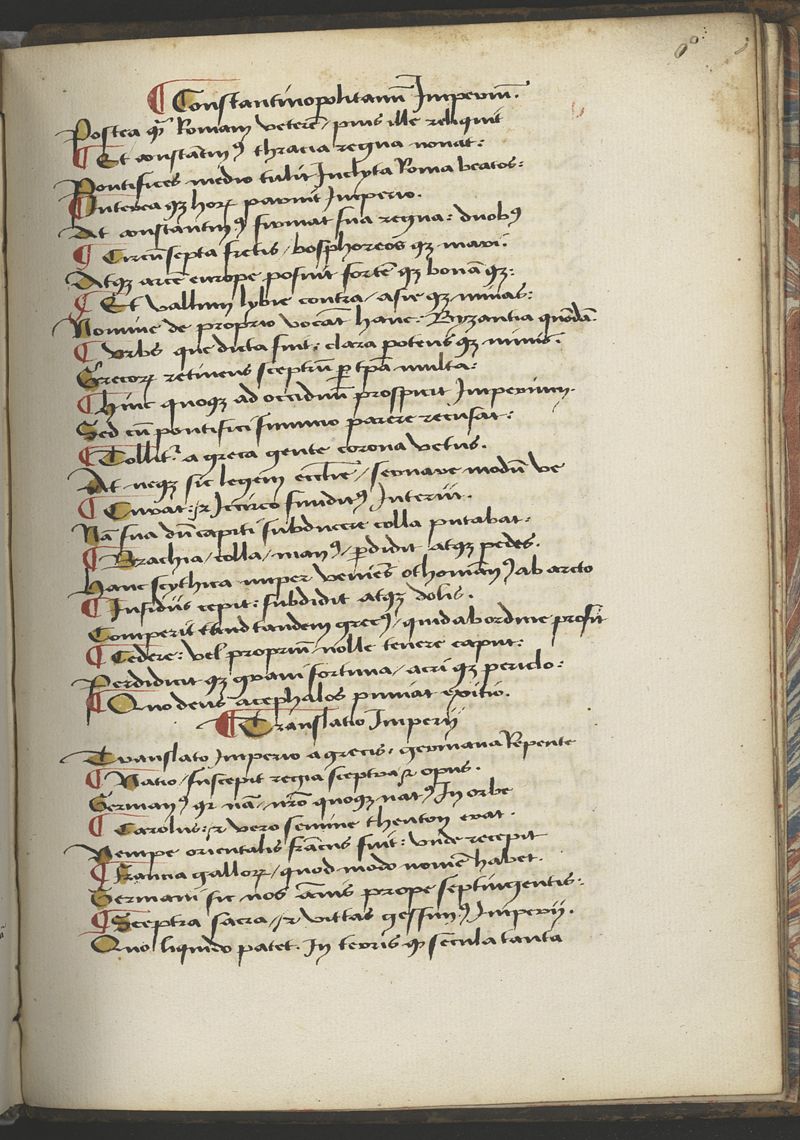 ¶ Constantinopolitanū Imperiū.
Postea qꝫ Romam veterē / pius ille reliquit
¶ Et constantinꝰ thracia regna nouat:
Pontifices medio tulit Inclyta Roma beatos:
Interea qꝫ horꝝ paruit Imperio.
At constantinꝰ firmat sua regna: duobꝰ
¶ Circūsepta fretis / bosphoreos qꝫ mari:
Atqꝫ arcē europe posuit fortē qꝫ bonā qꝫ:
¶ Et vallum lybie contra / asie qꝫ minas:
Nomine de proprio vocāt hanc: Byzantia quōdā
¶ Vrbs que dicta fuit: clara potens qꝫ nimis:
Grecorꝝ retinens sceptrū ꝑ tpa multa:
¶ Hinc quoqꝫ ad occiduū prospicit Imperium.
Sed cū pontifici summo parere recusat:
¶ Tollitʳ a greca gente corona vetus.
At neqꝫ sic legem eccłie / seruare modū ve
¶ Curat: ⁊ Iccirco funditꝰ Interiit.
Nā sua dū capiti subducere colla putabat:
¶ Brachia / colla / manꝰ / ꝑdidit atqꝫ pedes.
Hanc scythica nuper veniēs othomānꝰ ab arcto
¶ Insidiis cepit: subdidit atqꝫ dolis.
Comperit tandem grecꝰ / quid ab ordine profit
¶ Cedere: vel propriū nolle tenere caput:
Perdidicit qꝫ graui fortuna / acri qꝫ periclo:
¶ Quo deus acephalos puniat exitio.
¶ Translatio Imperij
Translato Imperio a grecis, germana Repente
¶ Natio / suscepit regia sceptra ⁊ opus.
Germanꝰ qr nā / nrō quoqꝫ natꝰ In orbe
¶ Carolus: ⁊ vero semine theuton erat.
Nempe orientalis frācus fuit: vnde recepit
¶ Francia gallorꝝ / quod modo nomē habet.
Germani sic nos ānis prope septingentis:
¶ Sceptra sacra / ⁊ vittas gessimꝰ Imperij.
Quo liquido patet. In terris qꝫ secula tanta